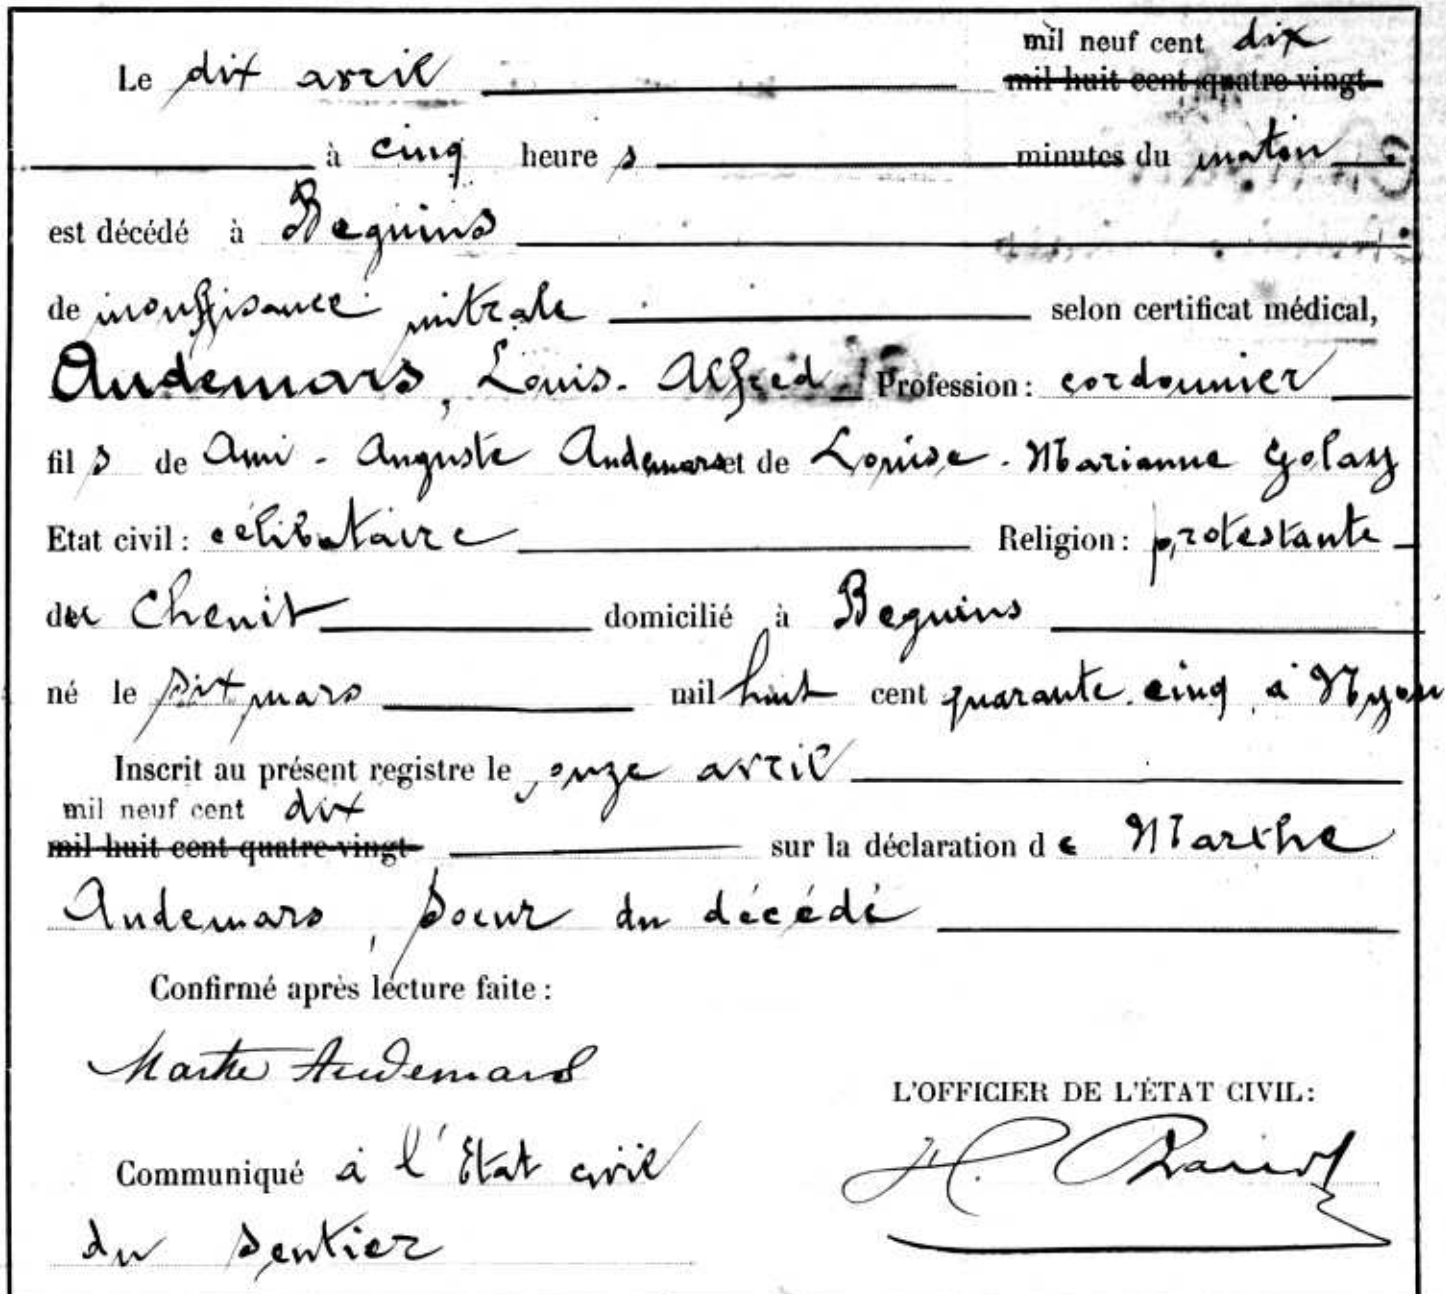 mil neuf cent dix
Le dix avril mil huit cent quatre-vingt
à cinq heures minutes du matin
est décédé à Begnins
de insuffisance mitrale selon certificat médical,
Audemars, Louis-Alfred. Profession: cordonnier
fils de Ami-Auguste Audemars et de Louise-Marianne Golay
Etat civil: célibataire Religion: protestante
du Chenit domicilié à Begnins
né le six mars mil huit cent quarante-cinq, à Nyon
Inscrit au présent registre le onze avril
mil neuf cent dix
mil huit cent quatre-vingt sur la déclaration de Marthe
Audemars, soeur du décédé
Confirmé après lecture faite:
Marthe Audemars
L'OFFICIER DE L'ÉTAT CIVIL:
Communiqué à l'Etat civil
du Sentier